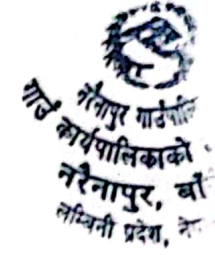 नरैनापुर गाउँपालि
गाउँ कार्यपालिकाको
नरैनापुर, बाँ
लुम्बिनी प्रदेश, नेप